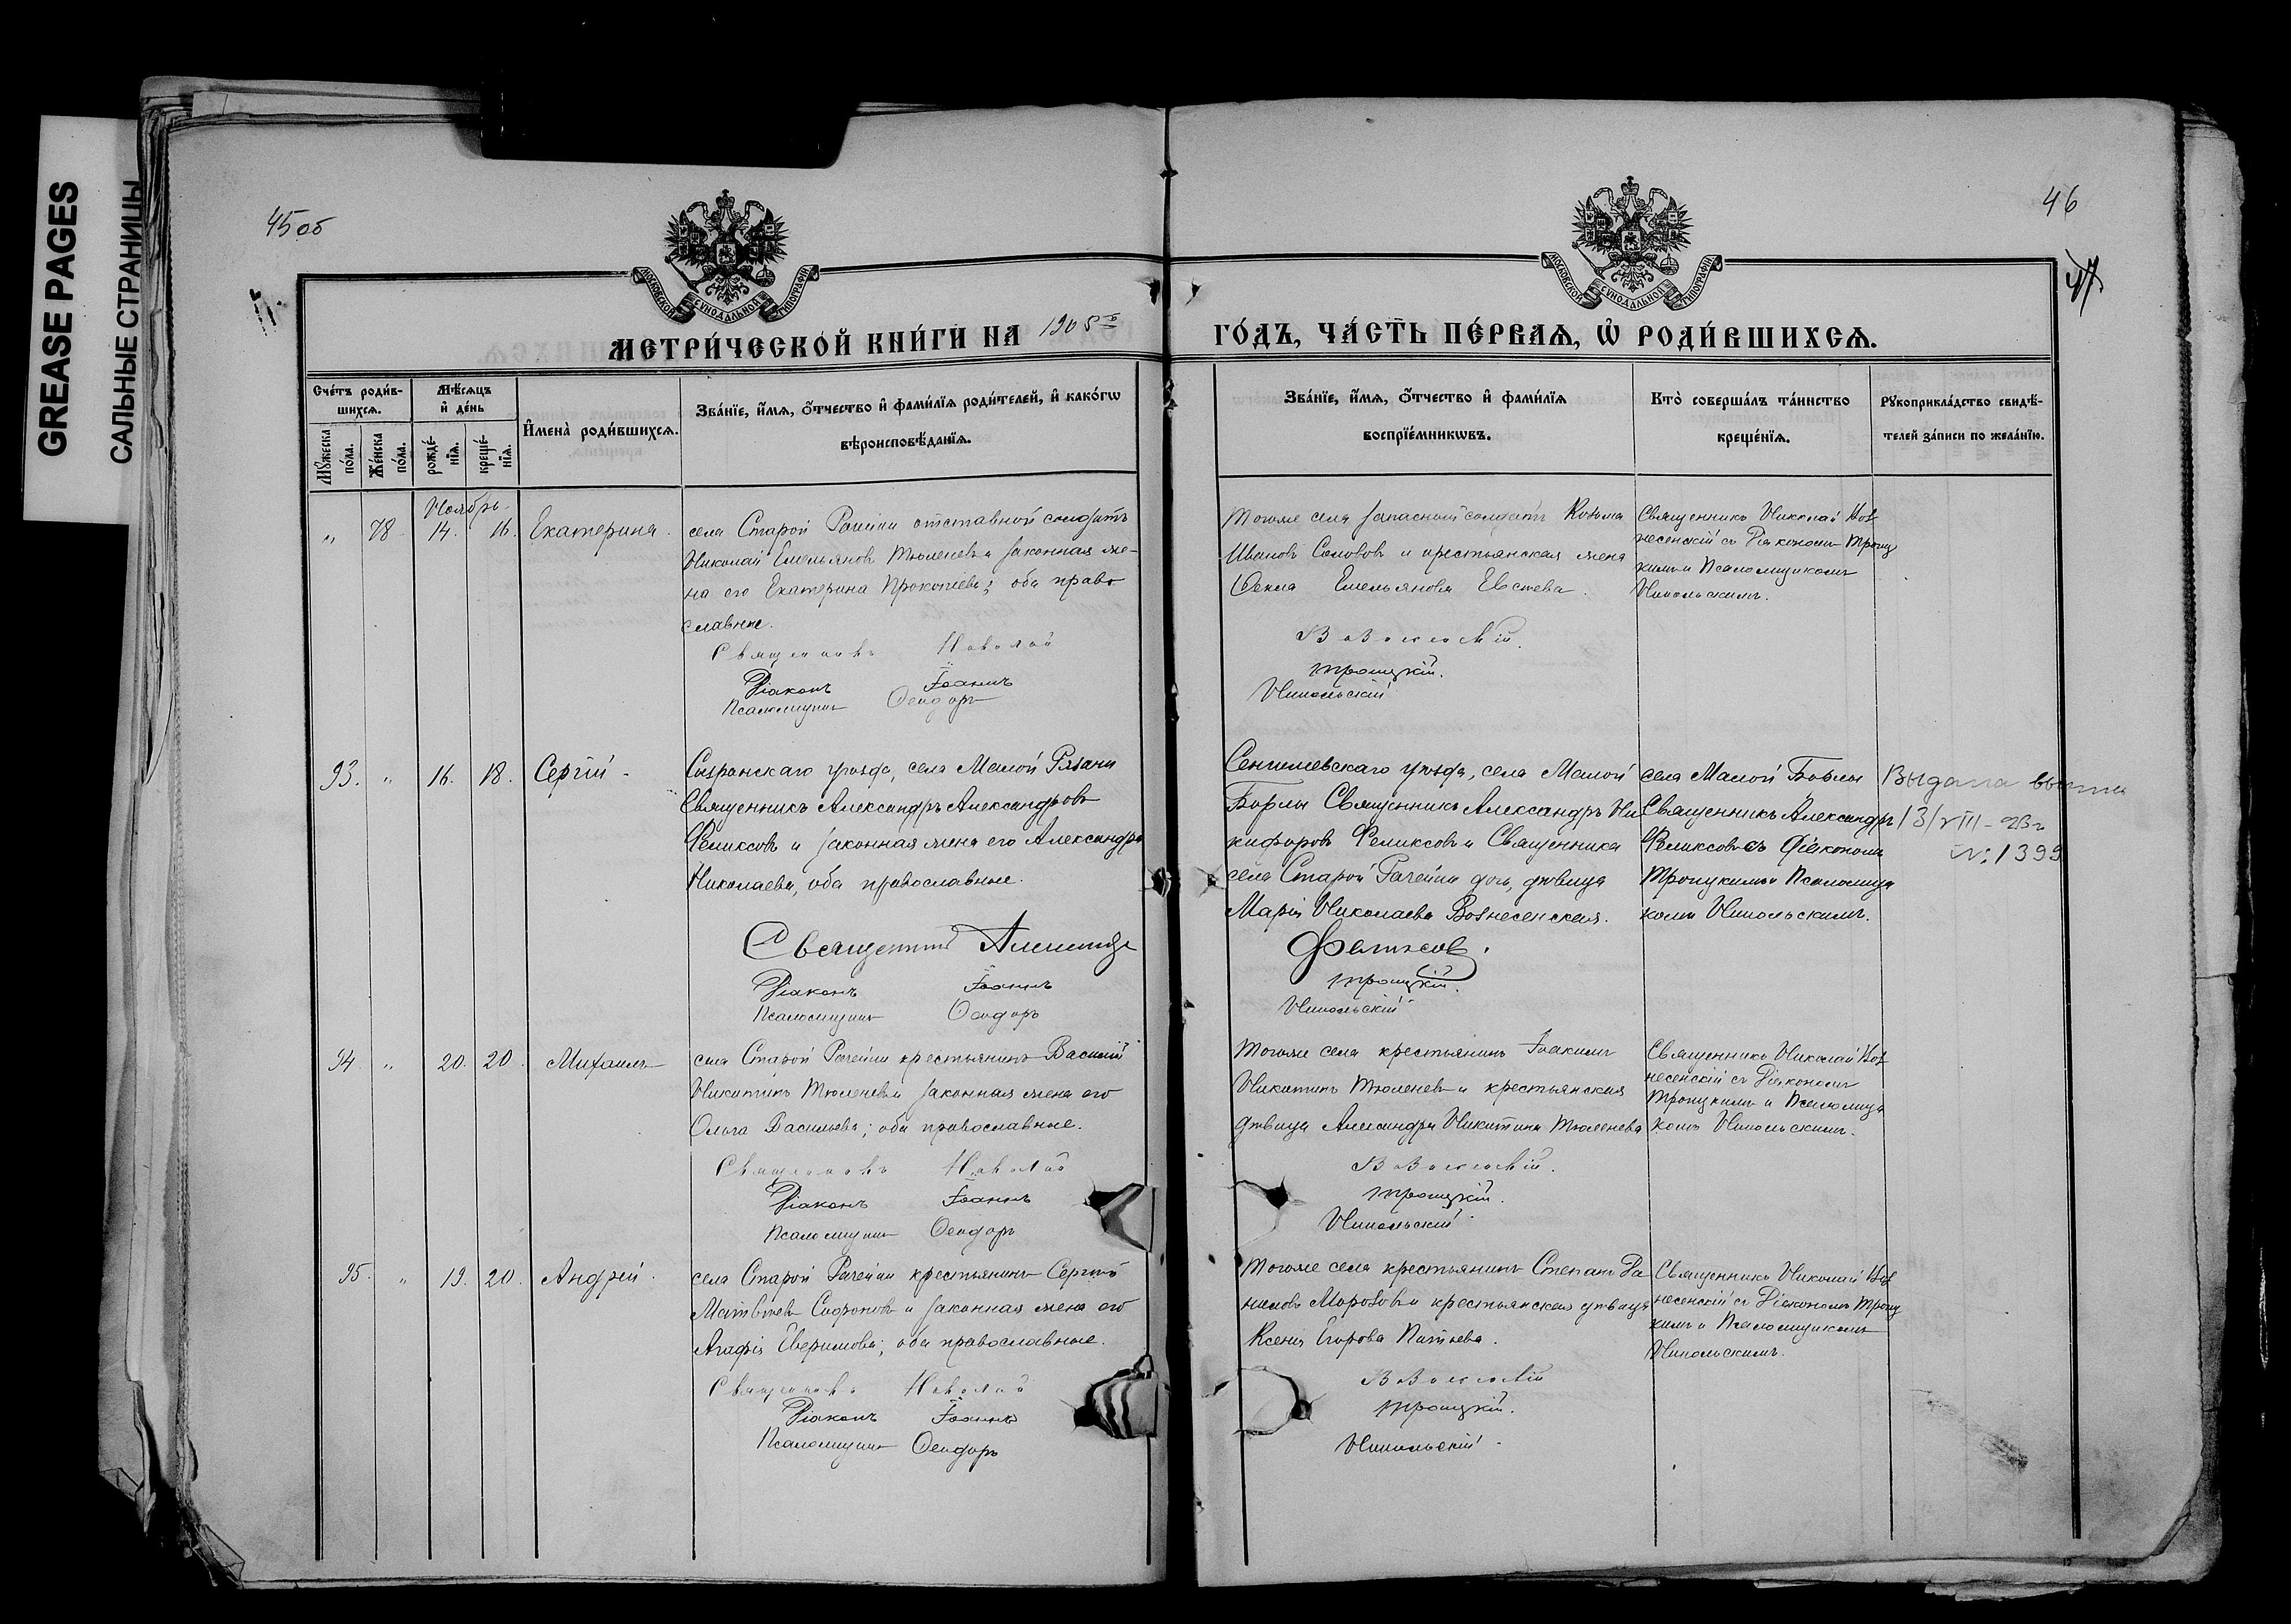 GREASE PAGES
САЛЬНЫЕ СТРАНИЦЫ
45об
46
47
МОСКОВСКОЙ СѴНОДАЛЬНОЙ ТИПОГРАФІИ
МОСКОВСКОЙ СѴНОДАЛЬНОЙ ТИПОГРАФІИ
МЕТРИ́ЧЕСКОЙ КНИ́ГИ НА 1905й
ГО́ДЪ, ЧА́СТЬ ПЕ́РВАѦ, Ѡ҆ РОДИ́ВШИХСѦ.
Сче́тъ роди́в-
шихсѧ.
Мꙋ́жеска по́ла.
Же́нска по́ла.
Мѣ́сѧцъ
и҆ де́нь
рожде́-
нїѧ.
креще́-
нїѧ.
И҆мена̀ роди́вшихсѧ.
Зва́нїе, и҆́мѧ, ѻ҆́тчество и҆ фами́лїѧ роди́телей, и҆ како́гѡ
вѣроисповѣ́данїѧ.
Зва́нїе, и҆́мѧ, ѻ҆́тчество и҆ фами́лїѧ
воспрїе́мникѡвъ.
Кто̀ соверша́лъ та́инство
креще́нїѧ.
Рꙋкоприкла́дство свидѣ́-
телей за́писи по жела́нїю.
Ноябрь.
" 78 14. 16. Екатерина.
села Старой Рачейки отставной солдатъ
Николай Емельяновъ Тюленевъ и законная же-
на его Екатерина Прокопіева; оба право
славные.
Священникъ Николай
Діаконъ Іоаннъ
Псаломщикъ Ѳеодоръ
Тогоже села запасный солдатъ Козьма
Ивановъ Солововъ и крестьянская жена
Ѳекла Емельянова Евстева.
Вознесенскій.
Троицкій.
Никольскій
Священникъ Николай Воз
несенскій съ Діакономъ Троиц
кимъ и Псаломщикомъ
Никольскимъ.
93. " 16. 18. Сергій
Сызранскаго уѣзда, села Малой Рязани
Священникъ Александръ Александровъ
Феликсовъ и законная жена его Александра
Николаева, оба православные.
Священникъ Александръ
Діаконъ Іоаннъ
Псаломщикъ Ѳеодоръ
Сенгилеевскаго уѣзда, села Малой
Борлы Священникъ Александръ Ни
кифоровъ Феликсовъ и Священника
села Старой Рачейки дочь, дѣвица
Марія Николаева Вознесенская.
Феликсовъ.
Троицкій.
Никольскій
села Малой Борлы
Священникъ Александръ
Феликсовъ съ Діакономъ
Троицкимъ и Псаломщи
комъ Никольскимъ.
Выдана
13/VIII-23г
№ 1399
94 " 20. 20. Михаилъ
села Старой Рачейки крестьянинъ Василій
Никитинъ Тюленевъ и законная жена его
Ольга Васильева; оба православные.
Священникъ Николай
Діаконъ Іоаннъ
Псаломщикъ Ѳеодоръ
Тогоже села крестьянинъ Іоакимъ
Никитинъ Тюленевъ и крестьянская
дѣвица Александра Никитина Тюленева
Вознесенскій.
Троицкій.
Никольскій
Священникъ Николай Воз
несенскій съ Діакономъ
Троицкимъ и Псаломщи
комъ Никольскимъ.
95. " 19. 20. Андрей.
села Старой Рачейки крестьянинъ Сергій
Матвѣевъ Софроновъ и законная жена его
Агафія; оба православные.
Священникъ Николай
Діаконъ Іоаннъ
Псаломщикъ Ѳеодоръ
Тогоже села крестьянинъ Степанъ Да
ниловъ Морозовъ и крестьянская дѣвица
Ксенія Егорова
Вознесенскій
Троицкій.
Никольскій
Священникъ Николай Воз
несенскій съ Діакономъ Троиц
кимъ и Псаломщикомъ
Никольскимъ.